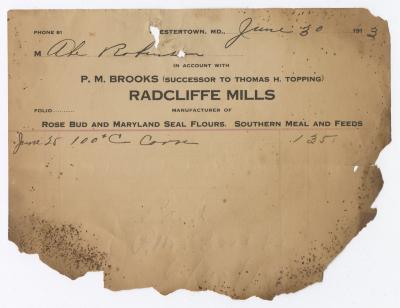 PHONE 81 ESTERTOWN, MD., June 30 1913
M Abe Robinson
IN ACCOUNT WITH
P. M. BROOKS (SUCCESSOR TO THOMAS H. TOPPING)
RADCLIFFE MILLS
FOLIO.......... MANUFACTURER OF
ROSE BUD AND MARYLAND SEAL FLOURS. SOUTHERN MEAL AND FEEDS
June 25 100# C Corn 1 35